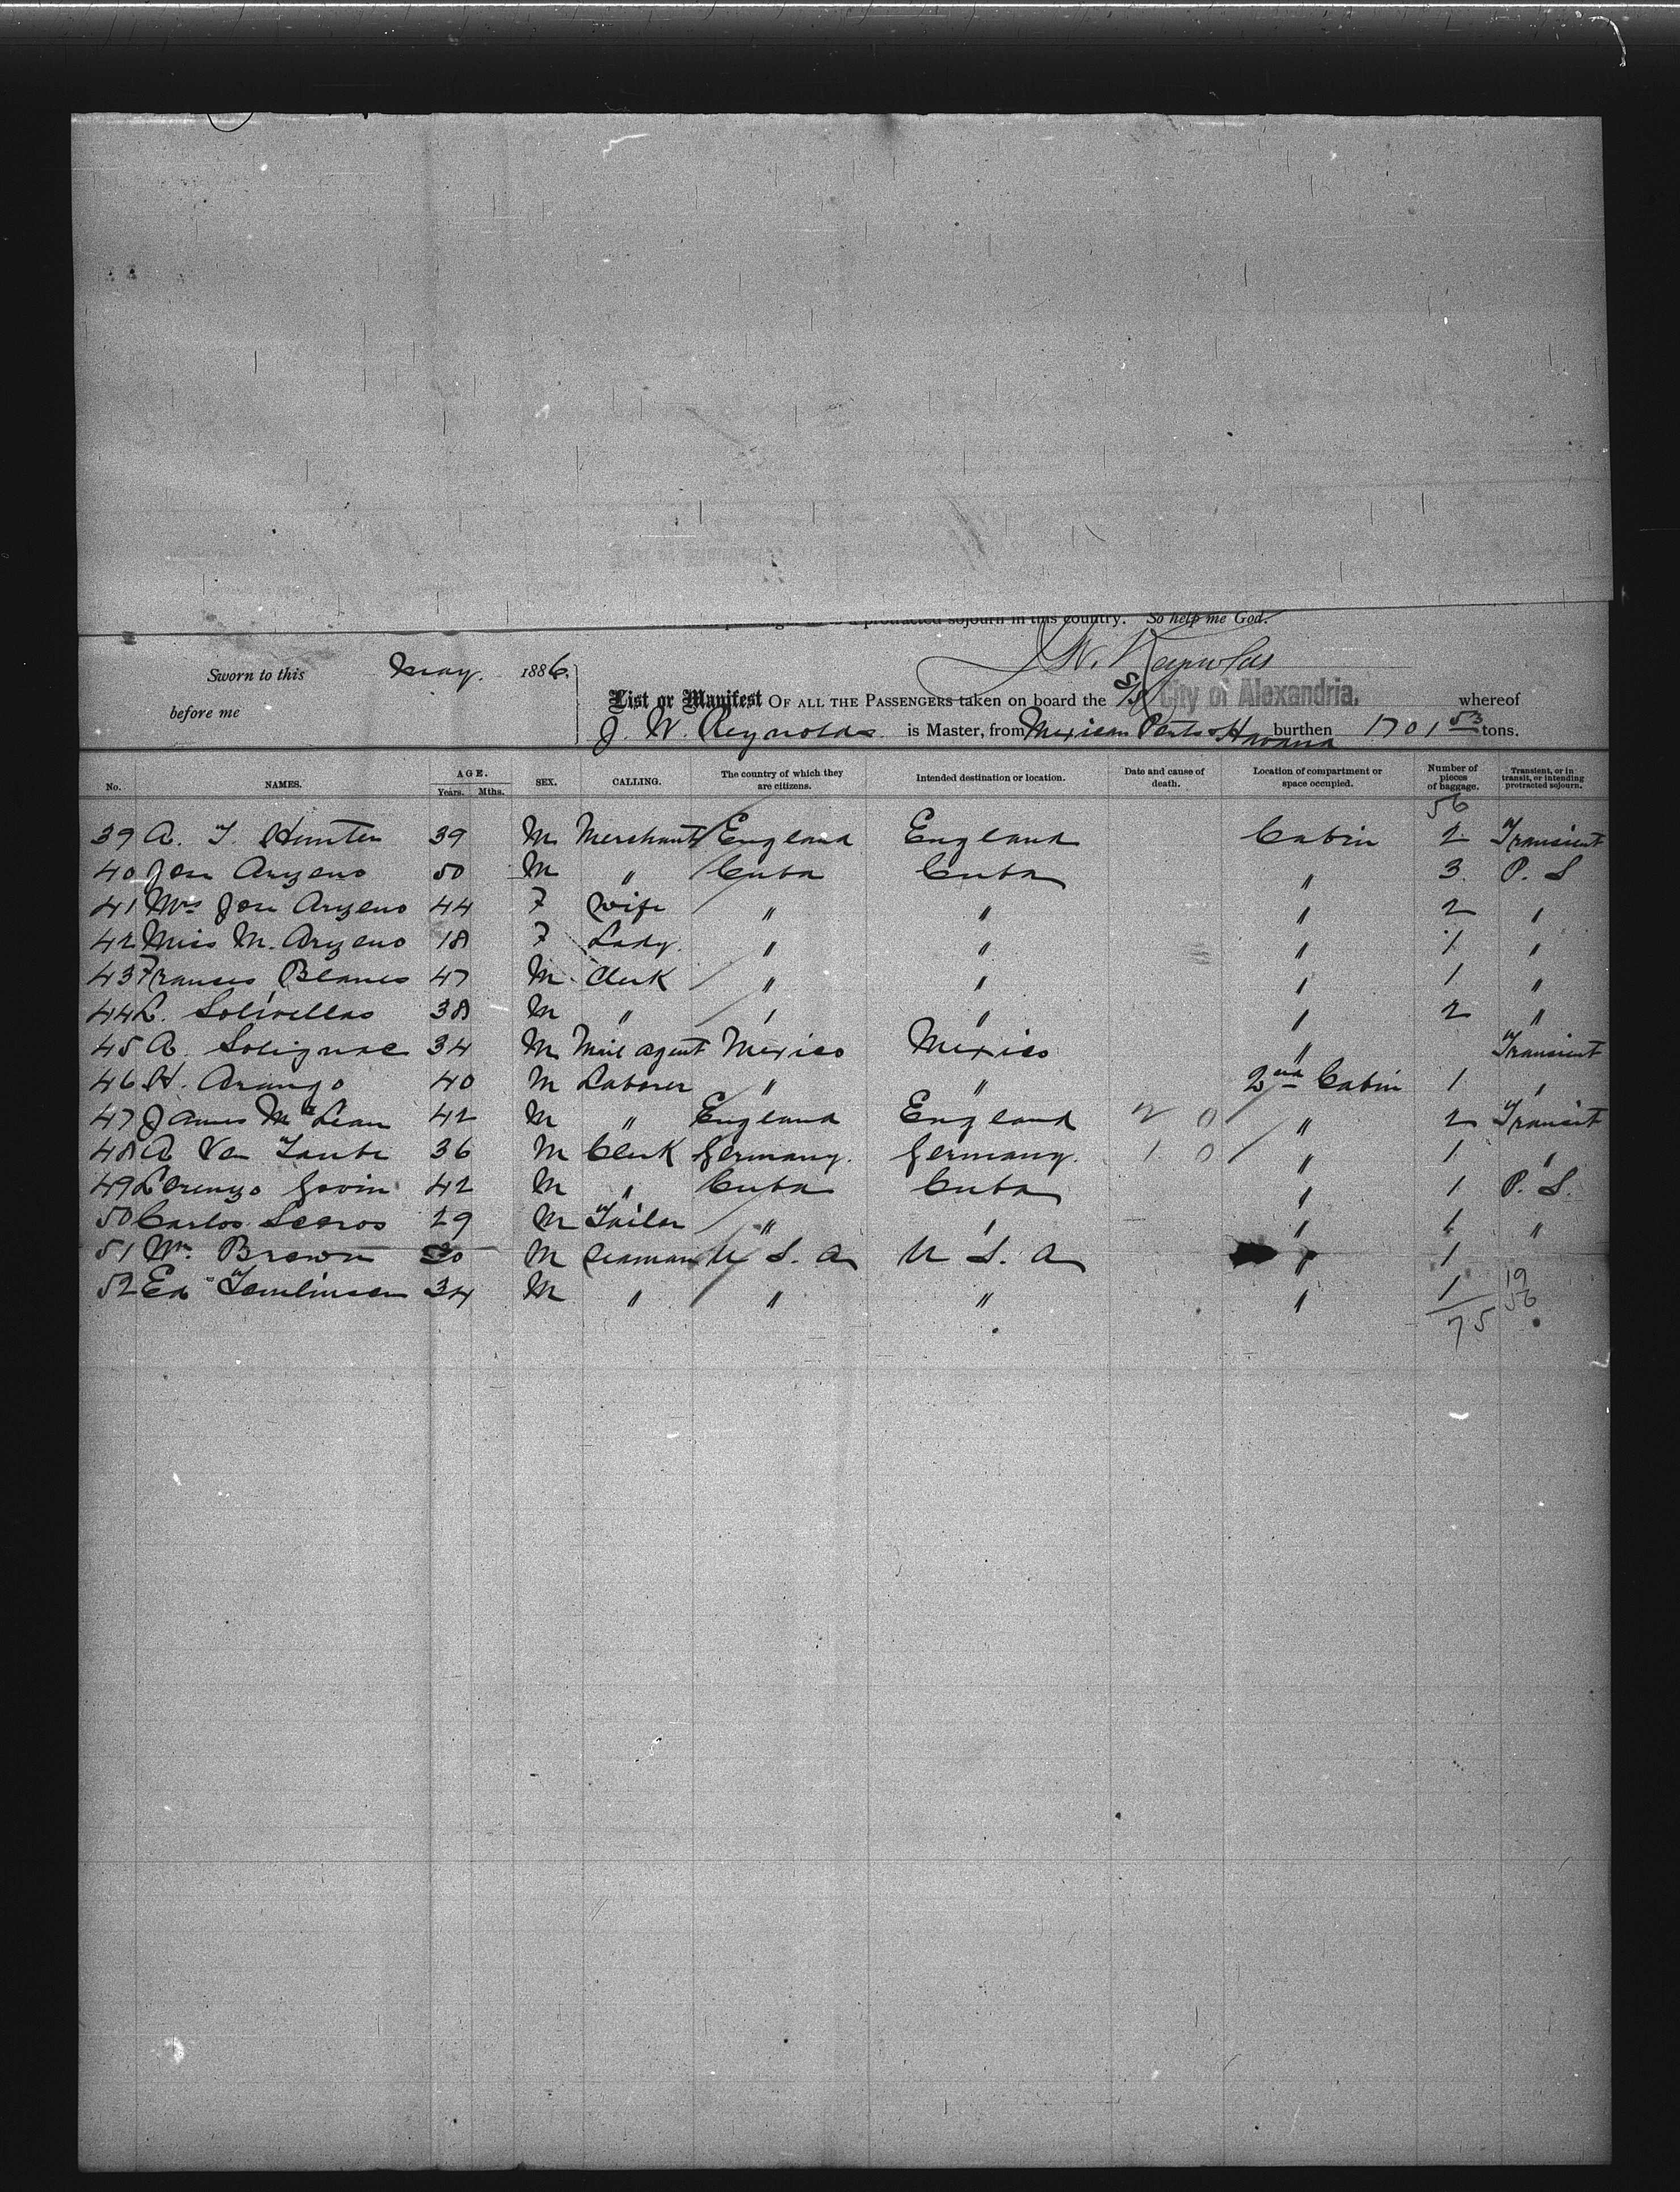 protracted sojourn in this country. So help me God.
J. W. Reynolds
Sworn to this May. 1886.
before me
List or Manifest OF ALL THE PASSENGERS taken on board the S/S City of Alexandria. whereof
J. W. Reynolds is Master, from Mexican Ports & Havana burthen 1701 53 tons.
No. NAMES. AGE. Years. Mths. SEX. CALLING. The country of which they are citizens. Intended destination or location. Date and cause of death. Location of compartment or space occupied. Number of pieces of baggage. Transient, or in transit, or intending protracted sojourn.
56
39 A. T. Hunter 39 M Merchant England England Cabin 2 Transient
40 Jose Aryeno 50 M " Cuba Cuba " 3 P. S
41 Mrs Jose Aryeno 44 F Wife " " " 2 "
42 Miss M. Aryeno 18 F Lady. " " " 1 "
43 Frances Blanes 47 M Clerk " " " 1 "
44 L. Solivellas 38 M " " " " 2 "
45 A. Solignac 34 M Mail agent Mexico Mexico " Transient
46 H. Arango 40 M Laborer " " 2nd Cabin 1 "
47 James McLean 42 M " England England 2 0 " 2 Transit
48 A Van Taube 36 M Clerk Germany. Germany. 1 0 " 1 "
49 Lorenzo Govin 42 M " Cuba Cuba " 1 P. S.
50 Carlos 29 M Tailor " " " 1 "
51 Wm. Brown 30 M Seaman U S. A U S. A " 1
52 Ed Tomlinson 34 M " " " " 1 19
56
75